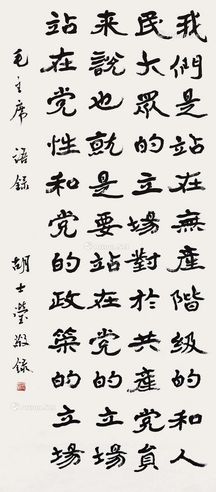 我們是站在無產階級的和人
民大眾的立場對於共產党員
来說也就是要站在党的立場
站在党性和党的政策的立場
毛主席語錄 胡士瑩敬錄